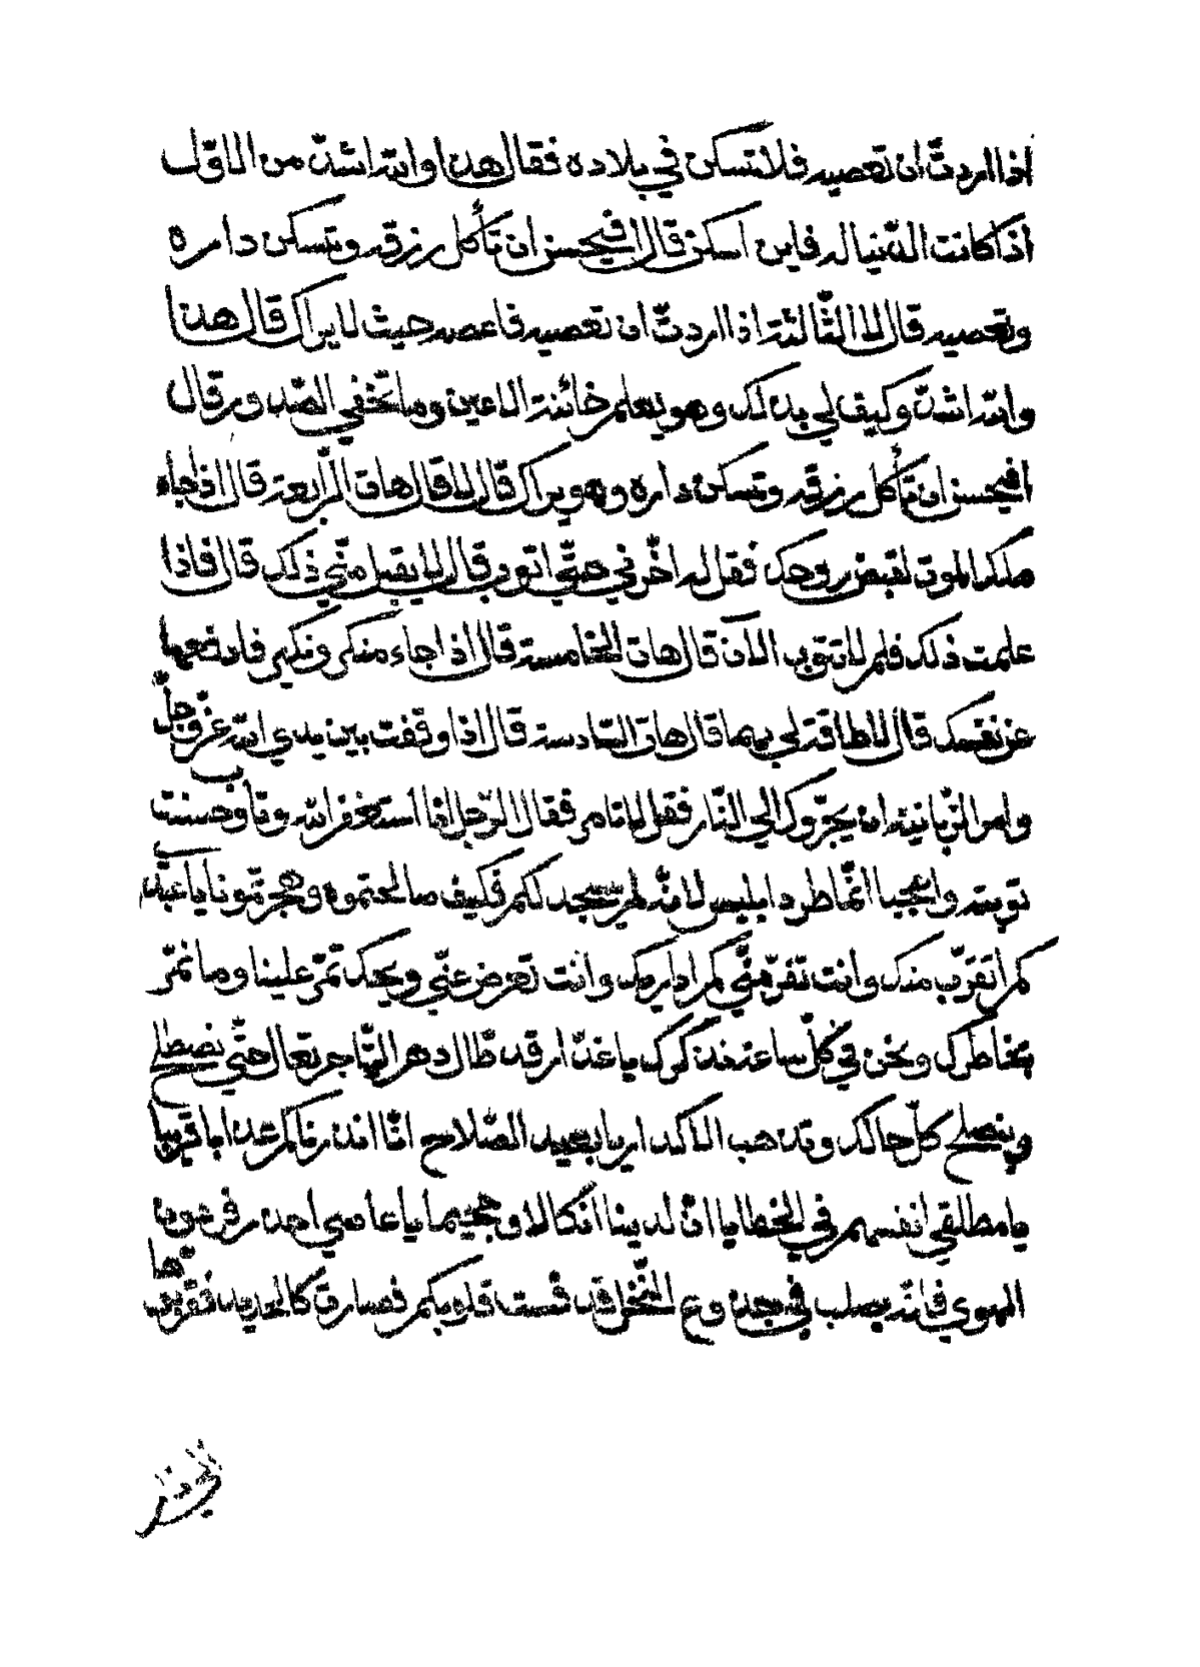 اذا اردتّ ان تعصيه فلا تسكن في بلاده فقال هذا والله اشدّ من الاوّل
اذا كانت الدّنيا له فاين اسكن قال افيحسن ان تأكل رزقه وتسكن داره
وتعصيه قال لا الثّالثة اذا اردتّ ان تعصيه فاعصه حيث لا يراك قال هذا
والله اشدّ وكيف لي بذلك وهو يعلم خائنة الاعين وما تخفي الصّدور قال
افيحسن ان تأكل رزقه وتسكن داره وهو يراك قال لا قال هات الرّابعة قال اذا جاء
ملك الموت لقبض روحك فقل له اخّرني حتّي اتوب قال لا يقبل منّي ذلك قال فاذا
علمت ذلك فلم لا تتوب الآن قال هات الخامسة قال اذا جاء منكر ونكير فادفعهما
عن نفسك قال لا طاقة لي بهما قال هات السّادسة قال اذا وقفت بين يدي الله عزّ وجلّ
وامر الزّبانية ان يجرّوك الي النّار فقل لا تامر فقال الرّجل انا استغفر الله وتاب وحسنت
توبته واعجبا انّما طرد ابليس لانّه لم يسجد لكم فكيف صالحتموه وهجرتمونا يا عبد
كم اتقرّب منك وانت تفرّ منّي كم اداريك وانت تعرض عنّي ويحك تمّر علينا وما نمرّ
بخاطرك ونحن في كلّ ساعة نذكرك يا غدّار قد طال دهر التّاجر تعال حتّي نصطلح
وينصلح كلّ حالك وتذهب الاكدار يا بعيد الصّلاح انّا انذرناكم عذابا قريبا
يا مطلقي انفسهم في الخطايا انّ لدينا انكالا وجحيما يا عاصي احذر فرعون
الهوي فانّه يصلب في جذوع النّخل قد قست قلوبكم فصارت كالحديد فقرّبوها